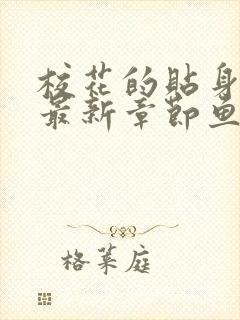 校花的贴身
最新章节鱼
格莱庭